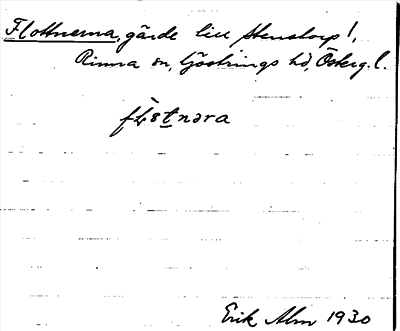 Flottnerna, gärde till Stenstorp!,
Rinna sn, Göstrings hd, Österg. l.
flo͝tnəra
Erik Alm 1930